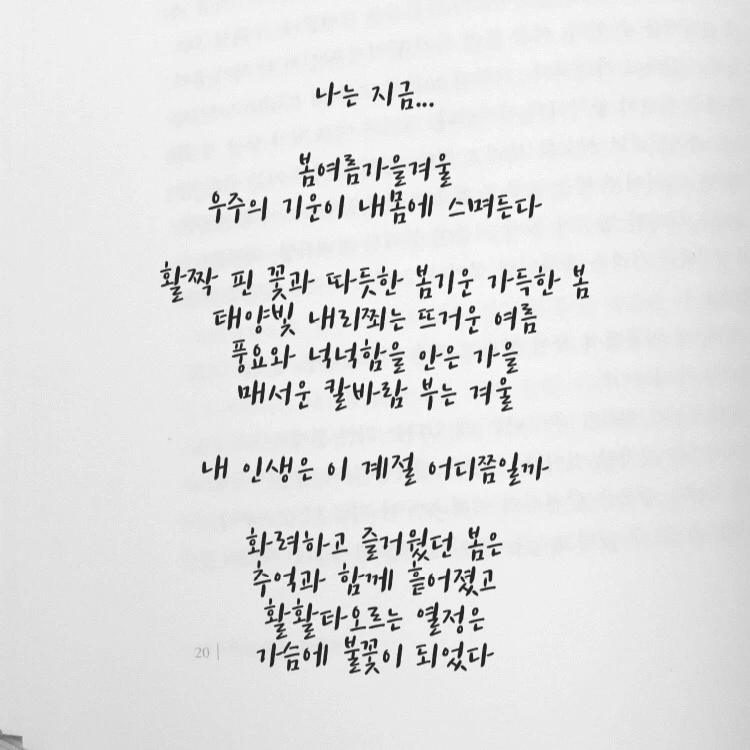 나는 지금...
봄여름가을겨울
우주의 기운이 내몸에 스며든다
활짝 핀 꽃과 따듯한 봄기운 가득한 봄
태양빛 내리쬐는 뜨거운 여름
풍요와 넉넉함을 안은 가을
매서운 칼바람 부는 겨울
내 인생은 이 계절 어디쯤일까
화려하고 즐거웠던 봄은
추억과 함께 흩어졌고
활활타오르는 열정은
가슴에 불꽃이 되었다
20 |